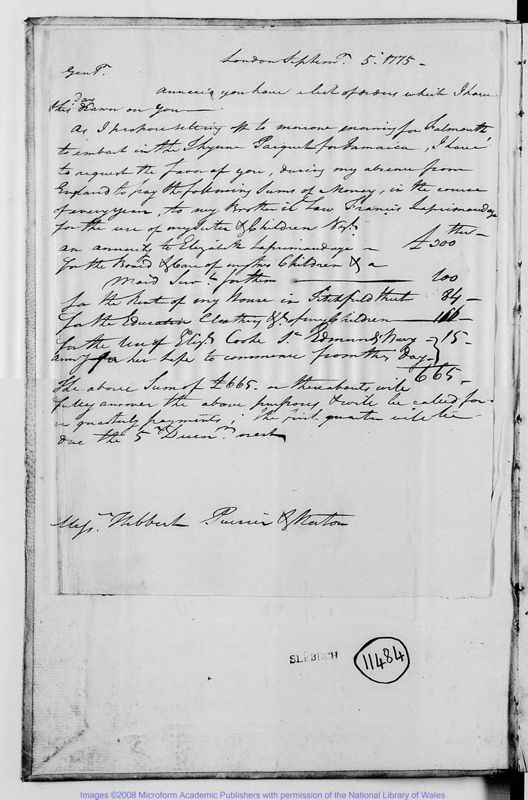 London Septemr. 5. 1775 -
Gentn.
Annexed you have a list of orders which I have
this day drawn on you
As I propose setting off to morrow morning for Falmouth
to embark in the Packquet for Jamaica, I have
to request the favor of you, during my absence from
England to pay the following Sums of Money, in the course
of every year, to my Brother in Law Francis
for the use of my Sister & Children
an annuity to Elizabeth £300
for the Board & Care of my two Children & a
Maid Servt. for them 100
for the Rent of my House in Street 84 -
for the Education Cloathing &c of my Children 166 -
for the use of Elizh. Cooke St. Edmunds Bury } 15 -
for her life to commence from this Day }
665 -
The above Sum of £665. or thereabouts will
fully answer the above purposes & will be called for
in quarterly payments; the first quarter will be
due the 5th Decemr. next
Messrs. Hibbert Purrier & Horton
SLEBECH
11484
Images ©2008 Microform Academic Publishers with permission of the National Library of Wales